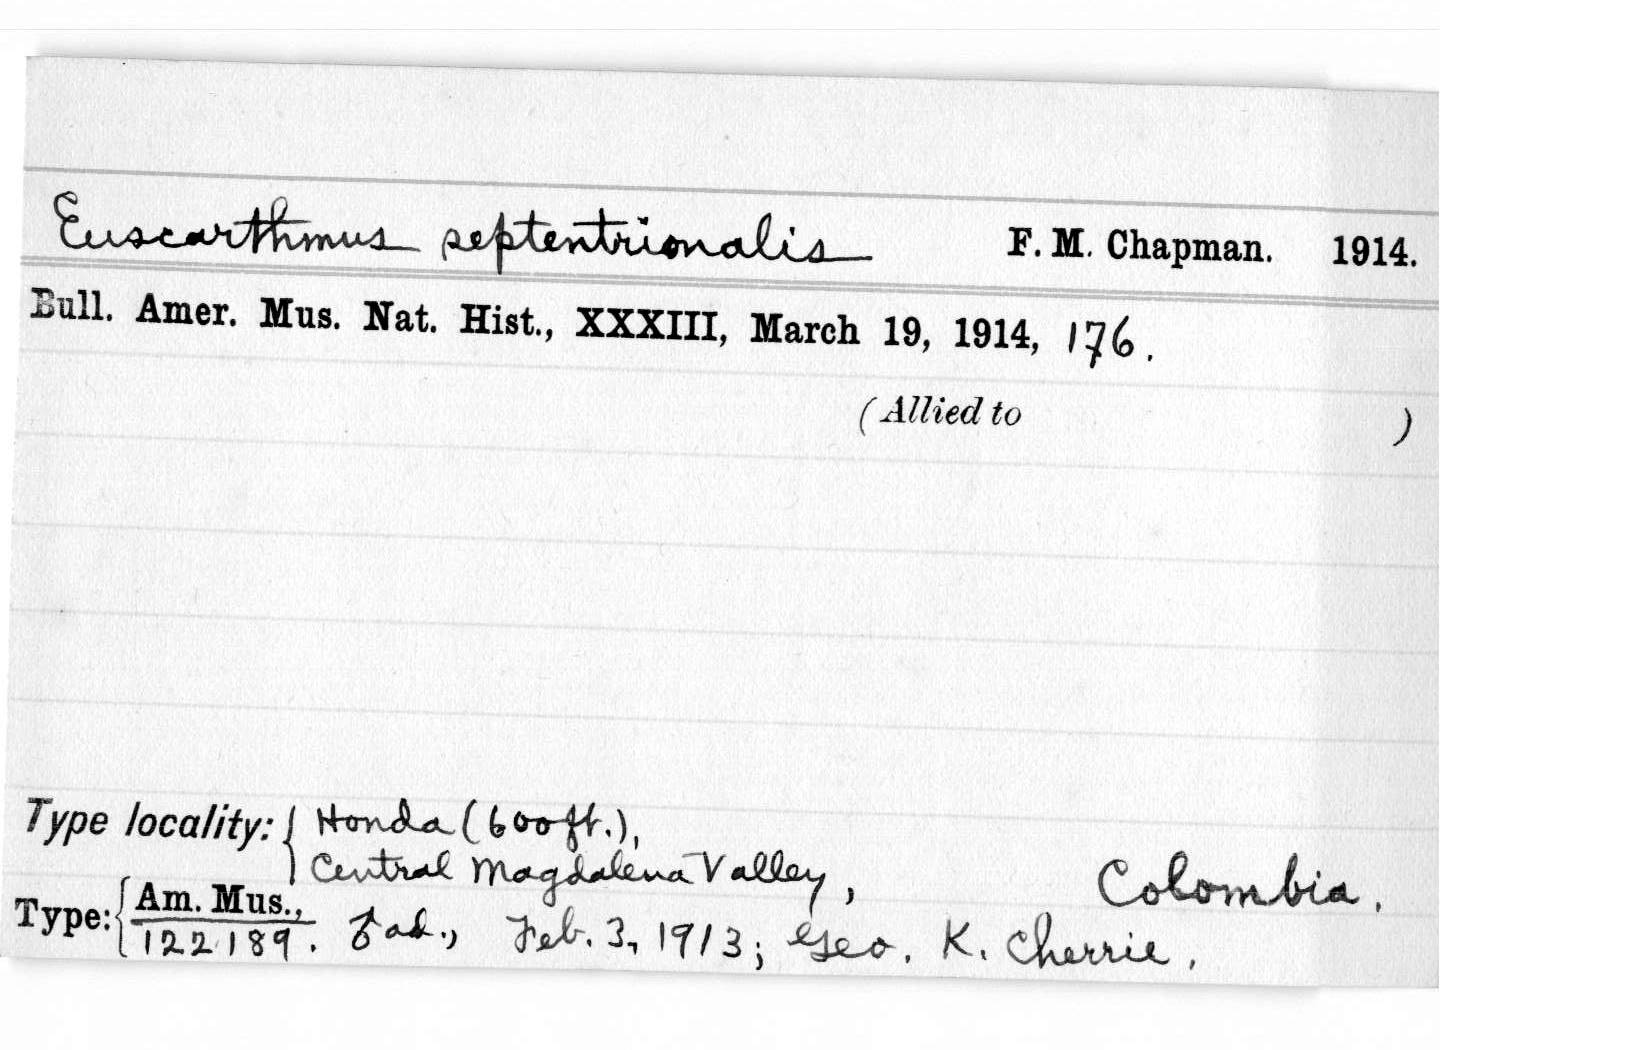 Euscarthmus septentrionalis F. M. Chapman. 1914.
Bull. Amer. Mus. Nat. Hist., XXXIII, March 19, 1914, 176.
(Allied to )
Type locality: { Honda (600 ft.),
Central Magdalena Valley, Colombia.
Type: { Am. Mus.,
122189. ♂ ad., Feb. 3, 1913; Geo. K. Cherrie.